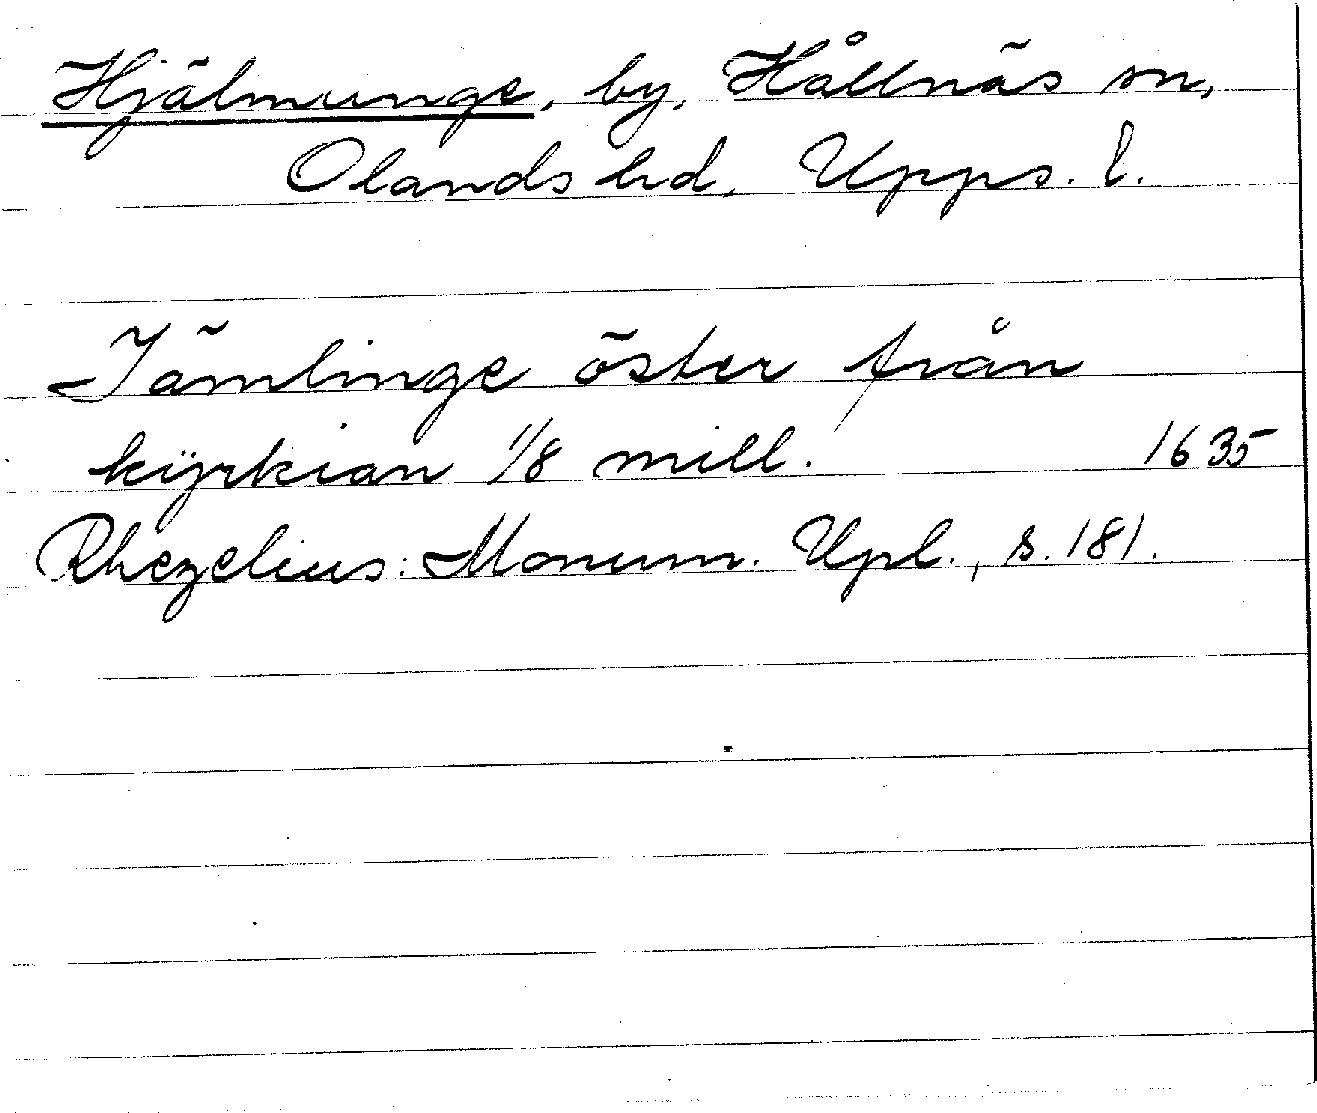 Hjälmunge, by, Hållnäs sn,
Olands hd, Upps. l.
Jämlinge öster från
kÿrkian 1/8 mill. 1635
Rhezelius: Monum. Upl., s. 181.